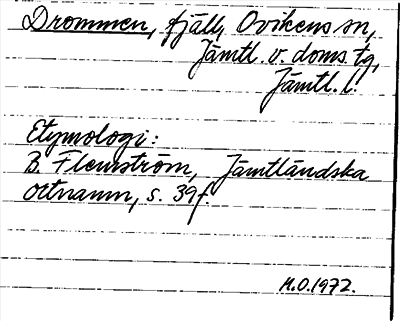 Drommen, fjäll, Ovikens sn,
Jämtl. v. doms. tg,
Jämtl. l.
Etymologi:
B. Flemström, Jämtländska
ortnamn, s. 39f.
M.O.1972.